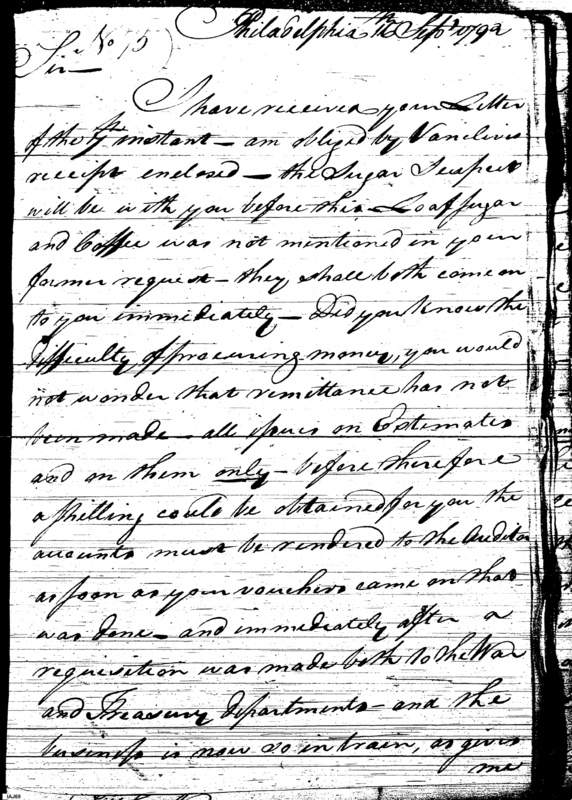 Philadelphia Sepr 1792
No 15
Sir—
I have received your Letter
of the 7th instant — am obliged by Vanclives
receipt enclosed — the Sugar I expect
will be with you before this — Loaf sugar
and Coffee was not mentioned in your
former request — they shall both come on
to you immediately — Did you know the
difficulty of procuring money, you would
not wonder that remittance has not
been made — all issues on Estimates
and on them only — before therefore
a shilling could be obtained for you the
accounts must be rendered to the Auditor
as soon as your vouchers came on that
was done — and immediately after a
requisition was made both to the War
and Treasury departments — and the
business is now so in train, as gives
me